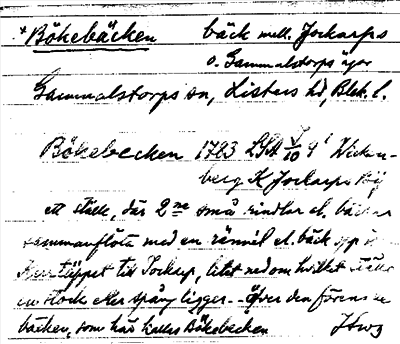 * Bökebäcken bäck mell. Jockarps
o. Gammalstorps ägor
Gammalstorps sn, Listers hd, Blek. l.
Bökebecken 1723 LSA 10 4' Wicken-
berg K Jockarps
ett ställe, där 2ne små rindlar el. bäckar
sammanflöta med en rännil el. bäck
till Jockarp, litet nedom hvilket ställe
en stock eller spång ligger - öfver den förenade
bäcken, som här kallas Bökebecken